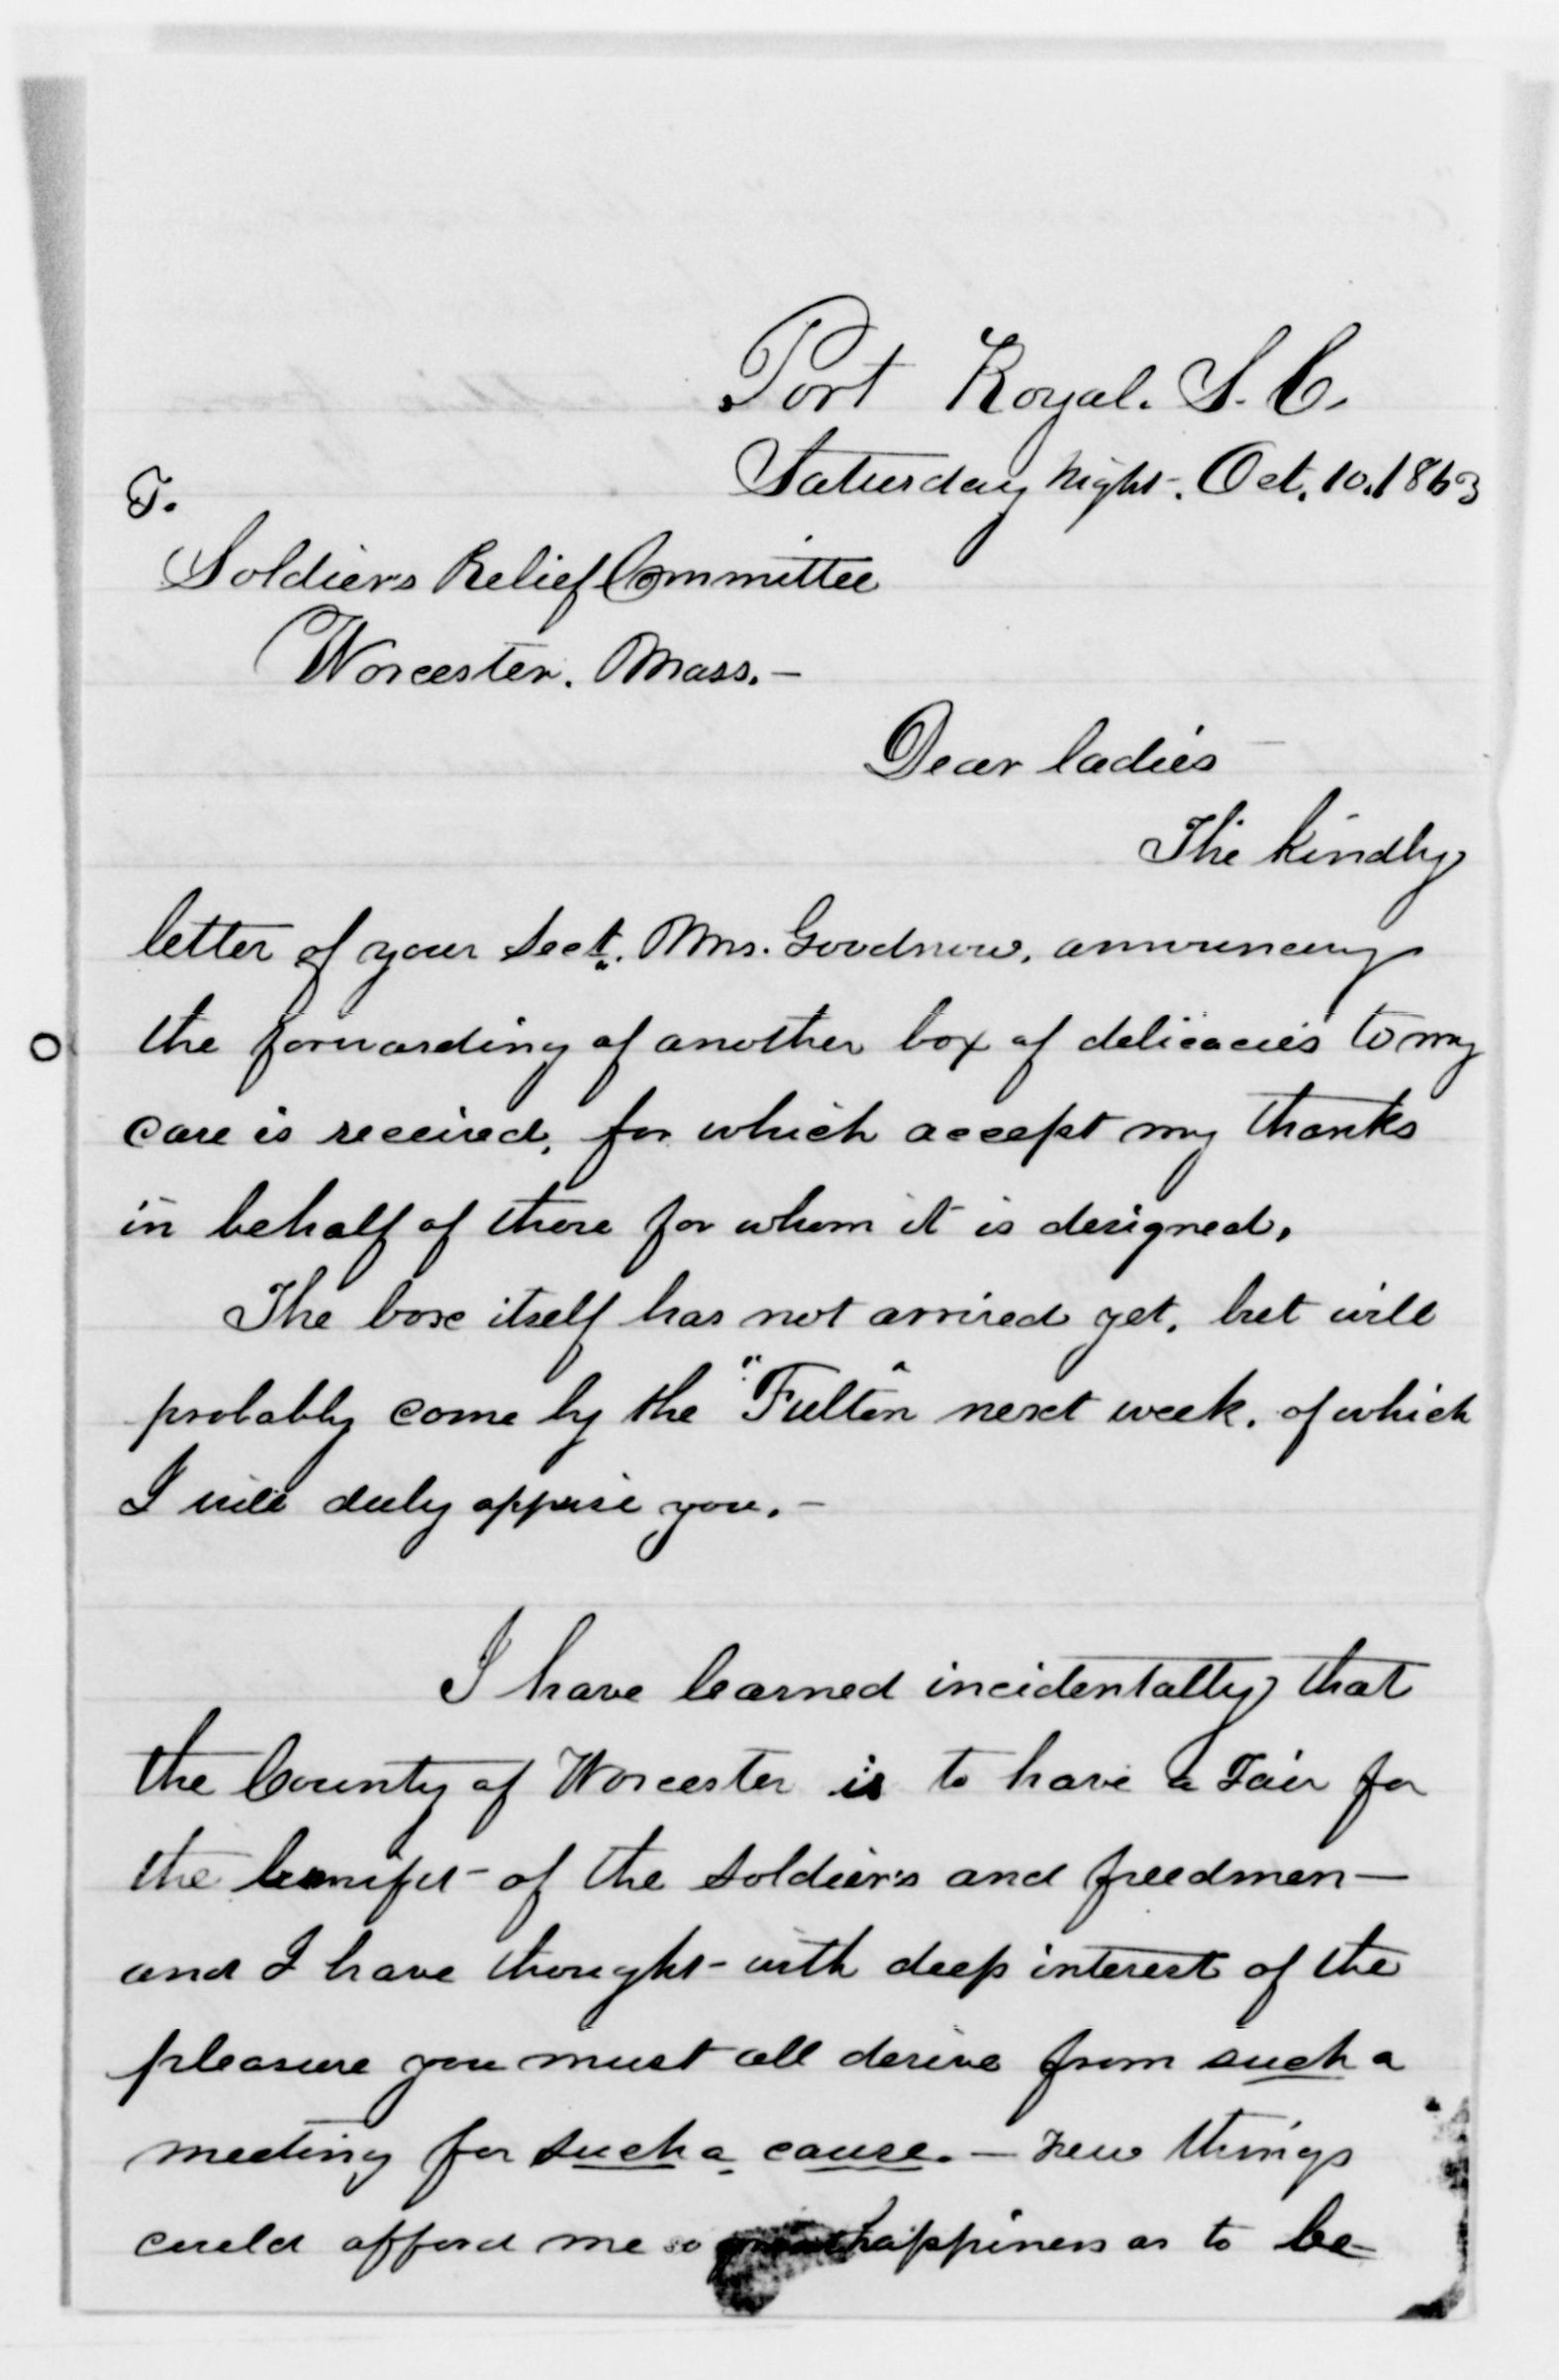 Port Royal. S. C.
Saturday night. Oct. 10. 1863
T.
Soldiers Relief Committee
Worcester. Mass. —
Dear ladies —
The kindly
letter of your Sect. Mrs. Goodnow, announcing
the forwarding of another box of delicacies to my
care is received, for which accept my thanks
in behalf of those for whom it is designed.
The box itself has not arrived yet, but will
probably come by the "Fulton" next week. of which
I will duly apprise you. —
I have learned incidentally that
the County of Worcester is to have a Fair for
the benifit of the soldiers and freedmen —
and I have thought with deep interest of the
pleasure you must all derive from such a
meeting for such a cause. — Few things
could afford me so happiness as to be